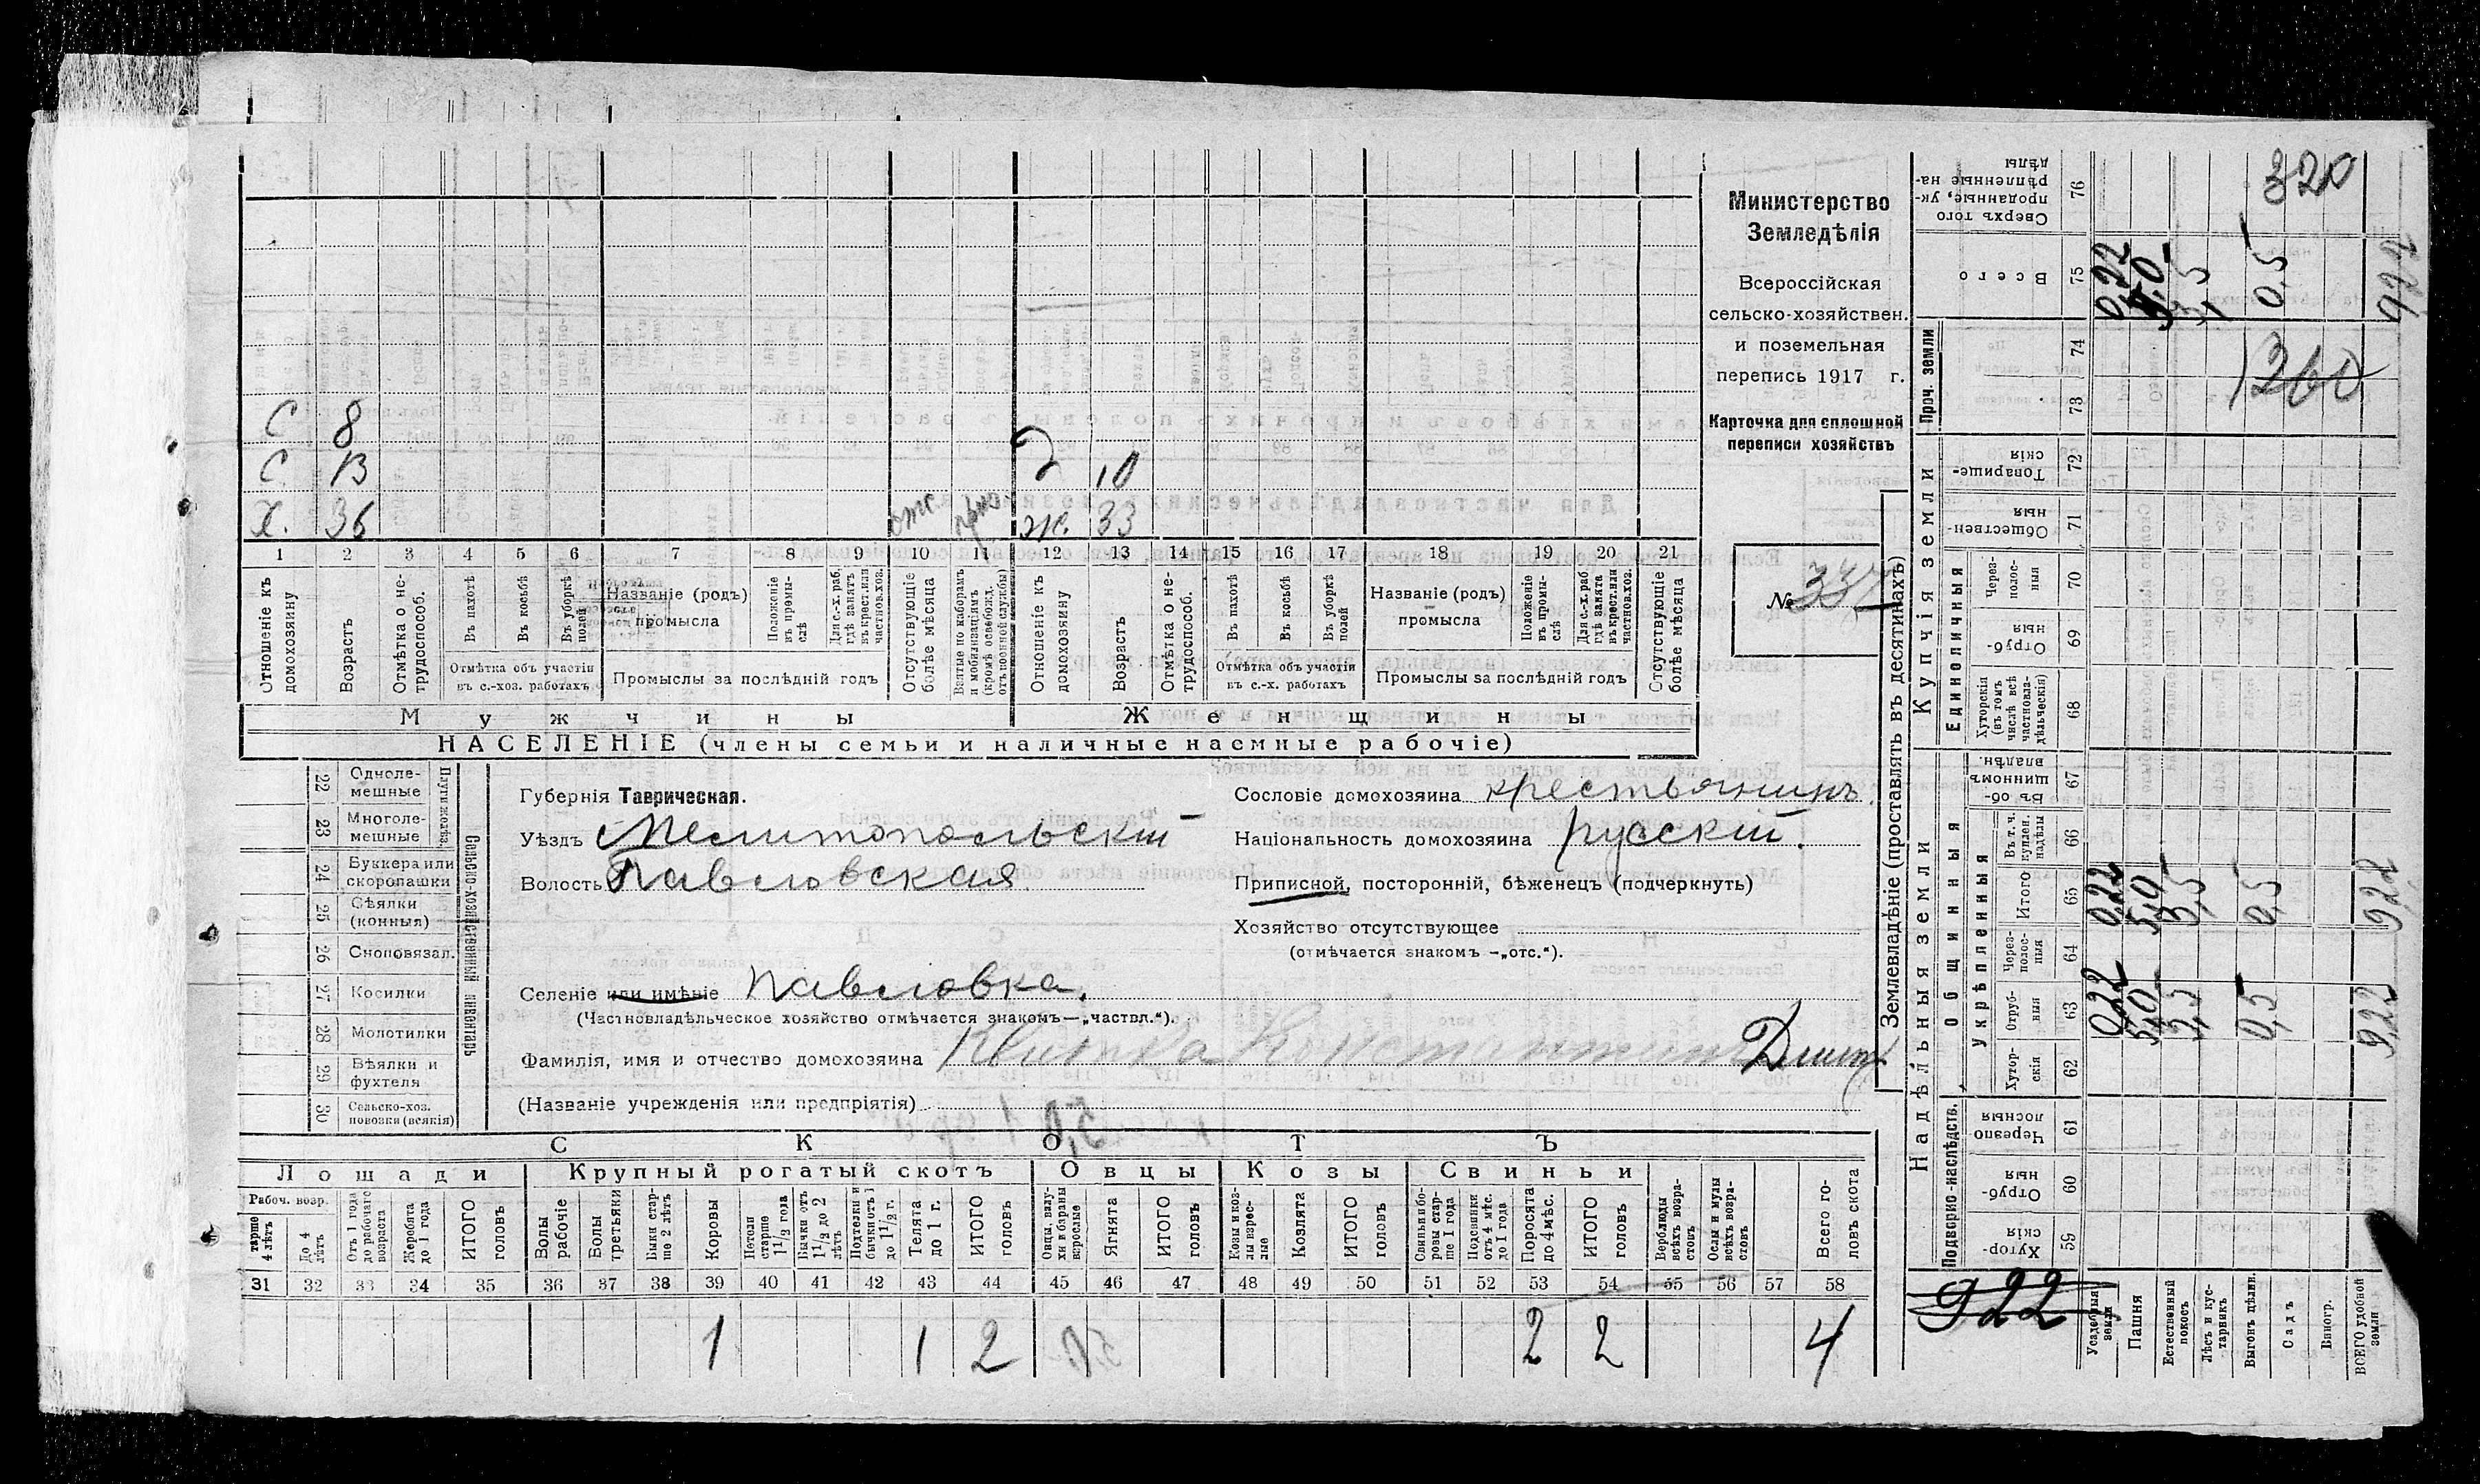 Министерство
Земледѣлія
Всероссійская
сельско-хозяйствен.
и поземельная
перепись 1917 г.
Карточка для сплошной
переписи хозяйствъ
№ 337
С 8
С. 13
Д 10
Х. 36
отс.
Ж. 33
1 2 3 4 5 6 7 8 9 10 11 12 13 14 15 16 17 18 19 20 21
Отношеніе къ домохозяину
Возрастъ
Отмѣтка о не-трудоспособ.
Въ пахотѣ
Въ косьбѣ
Въ уборкѣ полей
Отмѣтка объ участіи въ с.-хоз. работахъ
Названіе (родъ) промысла
Положеніе въ промы-слѣ
Для с.-х. раб. гдѣ занятъ въ крест. или частновл. хоз.
Промыслы за послѣдній годъ
Отсутствующіе болѣе мѣсяца
Взятые по наборамъ и мобилизаціямъ (кромѣ освобожд. отъ военной службы)
Отношеніе къ домохозяину
Возрастъ
Отмѣтка о не-трудоспособ.
Въ пахотѣ
Въ косьбѣ
Въ уборкѣ полей
Отмѣтка объ участіи въ с.-х. работахъ
Названіе (родъ) промысла
Положеніе въ промы-слѣ
Для с.-х. раб. гдѣ занята въ крест. или частнов. хоз.
Промыслы за послѣдній годъ
Отсутствующіе болѣе мѣсяца
Мужчины
Женщины
НАСЕЛЕНІЕ (члены семьи и наличные наемные рабочіе)
22 Одноле-мешные
23 Многоле-мешные
24 Буккера или скоропашки
25 Сѣялки (конныя)
26 Сноповязал.
27 Косилки
28 Молотилки
29 Вѣялки и фухтеля
30 Сельско-хоз. повозки (всякія)
Сельско-хозяйственный инвентарь
Губернія Таврическая.
Уѣздъ Мелитопольскій
Волость Павловская
Селеніе или имѣніе Павловка.
(Частновладѣльческое хозяйство отмѣчается знакомъ—„частвл.“).
Фамилія, имя и отчество домохозяина
(Названіе учрежденія или предпріятія)
Сословіе домохозяина крестьянинъ.
Національность домохозяина русскій.
Приписной, посторонній, бѣженец (подчеркнуть)
Хозяйство отсутствующее
(отмѣчается знакомъ -„отс.“).
СКОТЪ
Лошади
Крупный рогатый скотъ
Овцы
Козы
Свиньи
Рабоч. возр.
До 4 лѣтъ
Отъ 1 года до рабочаго возраста
Жеребята до 1 года
ИТОГО головъ
Волы рабочіе
Волы третьяки
Быки стар-ше 2 лѣтъ
Коровы
Нетели старше 1 1/2 года
Бычки отъ 1 1/2 до 2 лѣтъ
Подтелки и бычки отъ 1 до 1 1/2 г.
Телята до 1 г.
ИТОГО головъ
Овцы, валу-хи и бараны взрослые
Ягнята
ИТОГО головъ
Козы и коз-лы взрос-лые
Козлята
ИТОГО головъ
Свиньи и бо-ровы стар-ше 1 года
Подсвинки отъ 4 мѣс. до 1 года
Поросята до 4 мѣс.
ИТОГО головъ
Верблюды всѣхъ возра-стовъ
Ослы и мулы всѣхъ возра-стовъ
Всего го-ловъ скота
31 32 33 34 35 36 37 38 39 40 41 42 43 44 45 46 47 48 49 50 51 52 53 54 55 56 57 58
1 1 2 2 2 4
Землевладѣніе (проставлять въ десятинахъ)
Надѣльныя земли
Купчія земли
Проч. земли
Подворно-наслѣдств.
Общинныя
Укрѣпленныя
Единоличныя
59 Хутор-скія
60 Отруб-ныя
61 Черезпо лосныя
62 Хутор-скія
63 Отруб-ныя
64 Через-полос-ныя
65 Итого
66 Въ т. ч. куплен. надѣлы
67 Въ об-щинномъ владѣн.
68 Хуторскія (въ томъ числѣ всѣ частновла-дѣльческія)
69 Отруб-ныя
70 Через-полос-ныя
71 Обществен-ныя
72 Товарище-скія
73
74
75 Всего
76 Сверхъ того проданные, ук-рѣпленные на-дѣлы
Усадебныя земля
Пашня
Естественный покосъ
Лѣсъ и кус-тарникъ
Выгонъ цѣлин.
Садъ
Виногр.
ВСЕГО удобной земли
0,22 5,0 3,5 0,5 9,22
0,22 5,0 3,5 0,5 9,22
0,22 5,0 3,5 0,5 9,22
320
1260
922